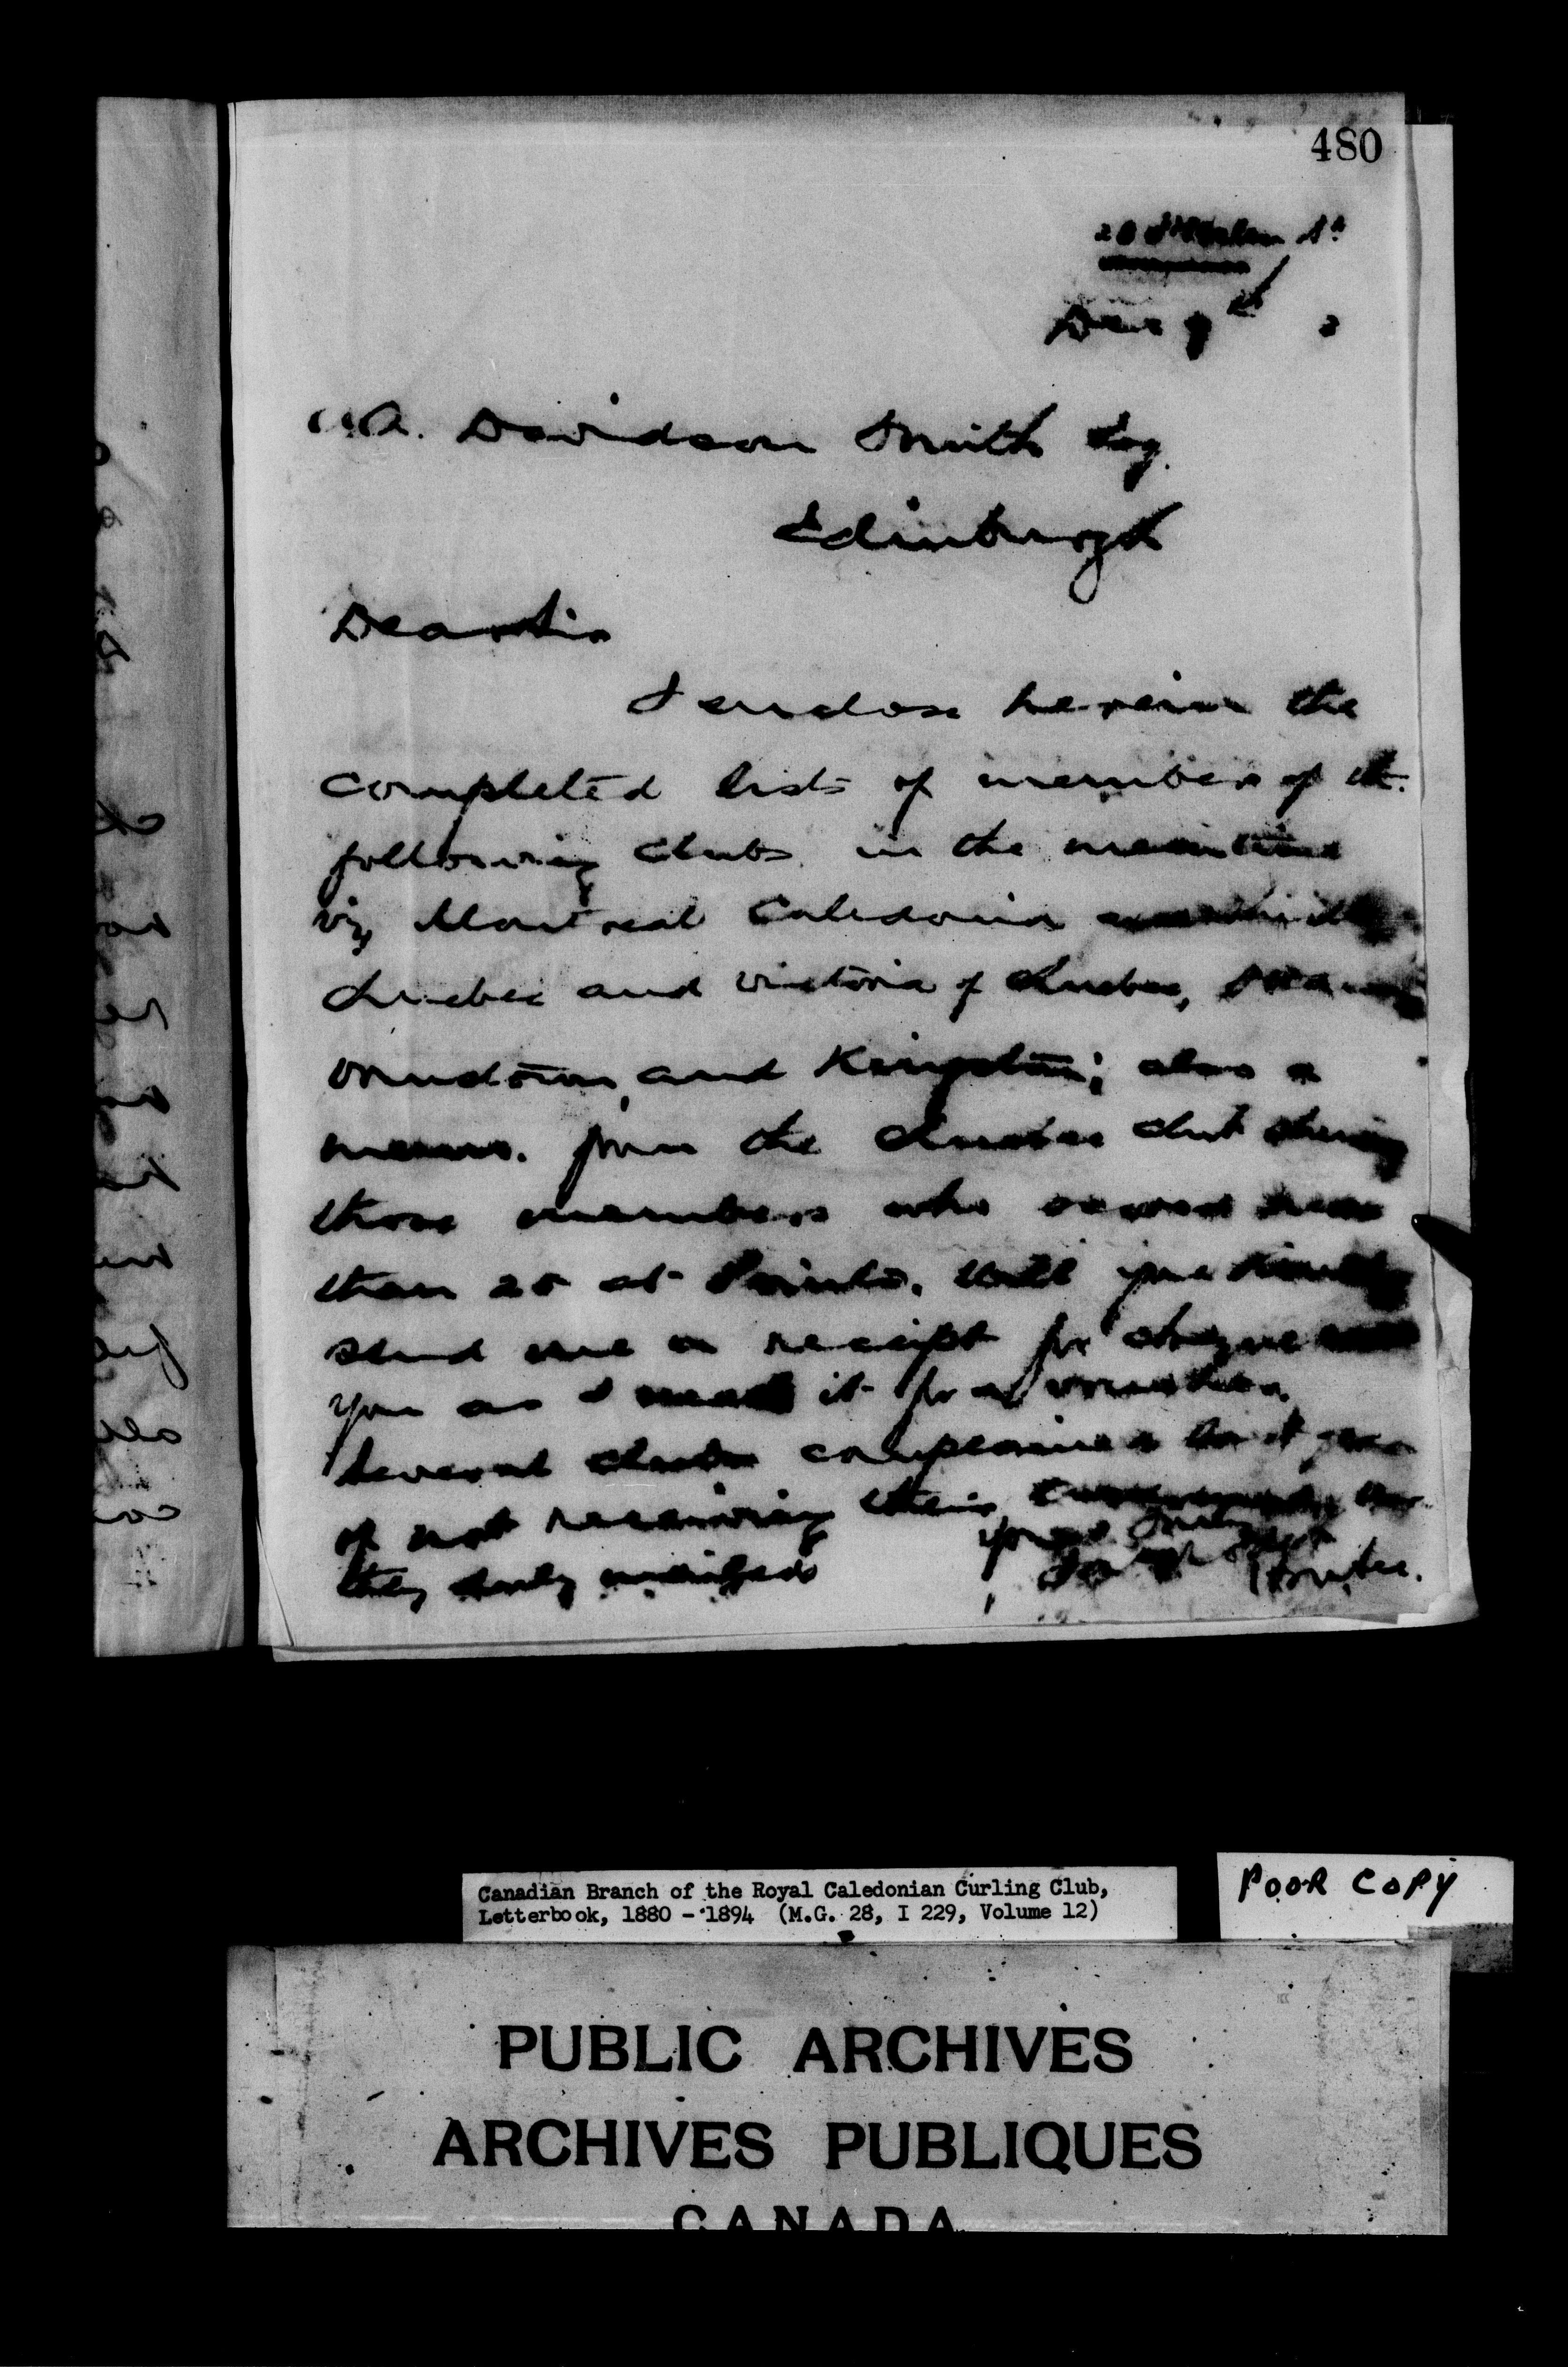 480
Dec 9th
A. Davidson Smith Esq.
Edinburgh
Dear Sir
I enclose herein the
completed lists of members of the
following Clubs in the meantime
viz Montreal Caledonia
Quebec and Victoria of Quebec,
and Kingston; also a
memo. from the Quebec Club
those members who scored more
than 20 at Points. Will you kindly
send me a receipt for cheque
you as I it for a voucher.
Several clubs complained last year
of not receiving their
they
Yours truly
Canadian Branch of the Royal Caledonian Curling Club,
Letterbook, 1880 - 1894 (M.G. 28, I 229, Volume 12)
POOR COPY
PUBLIC ARCHIVES
ARCHIVES PUBLIQUES
CANADA